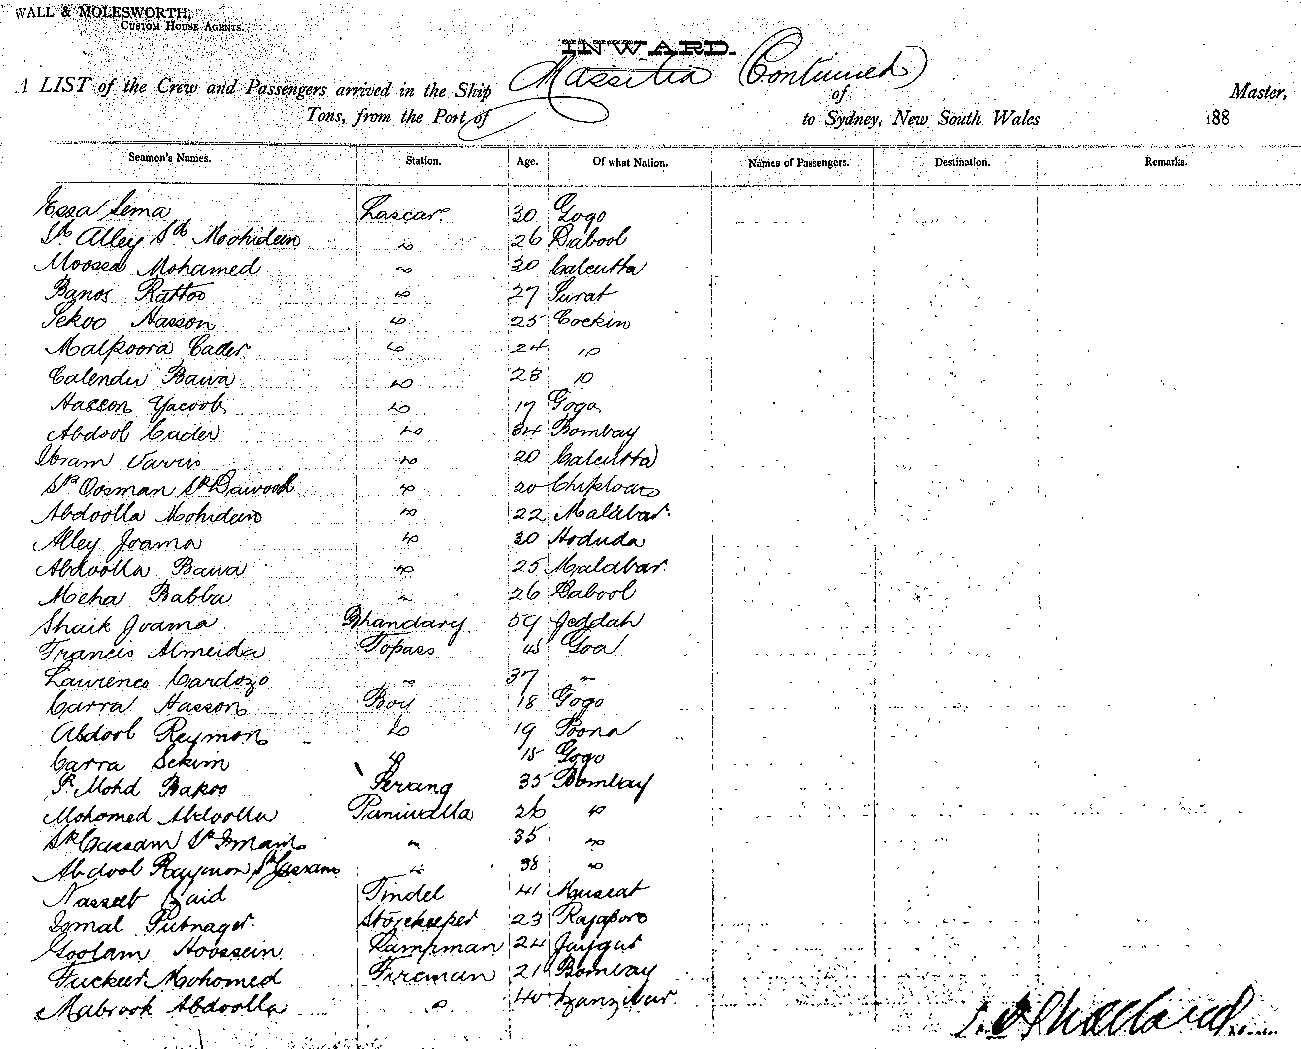 WALL & MOLESWORTH,
CUSTOM HOUSE AGENTS.
INWARD.
A LIST of the Crew and Passengers arrived in the Ship Massilia (Continued) of Master,
Tons, from the Port of to Sydney, New South Wales 188
Seamen's Names. Station. Age. Of what Nation. Names of Passengers. Destination. Remarks.
Essa Sema Lascar 30 Gogo
Sk Alley Sk Mohideen do 26 Dabool
Moosa Mohamed do 30 Calcutta
Banos Rattoo do 27 Surat
Sekoo Hasson do 25 Cockin
Malpoora Cader do 24 do
Calender Bawa do 28 do
Hasson Yacoob do 17 Gogo
Abdool Cader do 34 Bombay
Ibram do 20 Calcutta
Sk Oosman Sk Dawood do 20 Chiploon
Abdoolla Mohideen do 22 Malabar
Alley Joama do 30 Hoduda
Abdoolla Bawa do 25 Malabar
Meha Babbu " 26 Dabool
Shaik Joama Bhandary 59 Jeddah
Francis Almeida Topass 45 Goa
Laurence Cardozo " 37 "
Carra Hasson Boy 18 Gogo
Abdool Reymon do 19 Poona
Carra Sekim do 15 Gogo
Sk Mohd Bakoo Serang 35 Bombay
Mohomed Abdoolla Paniwalla 26 do
Sk Cassam Sk Imam " 35 do
Abdool Raymon Sk Cassam do 38 do
Nasseeb Zaid Tindel 41 Muscat
Ismal Putnager Storekeeper 23 Rajapore
Goolam Hoossein Lampman 24 Jaygur
Fuckeer Mohomed Fireman 21 Bombay
Mabrook Abdoolla do 40 Zanzibar